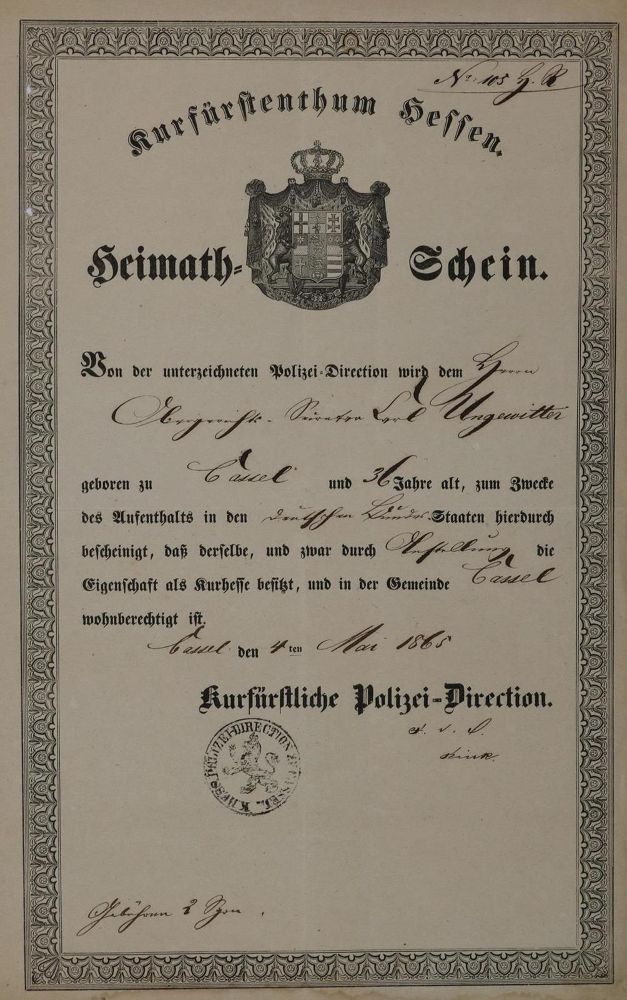 No 105 H. R
Kurfürstenthum Hessen.
Heimath-Schein.
Von der unterzeichneten Polizei-Direction wird dem Herrn
Obergerichts-Secretar Carl Ungewitter
geboren zu Cassel und 36 Jahre alt, zum Zwecke
des Aufenthalts in den deutschen Bundes Staaten hierdurch
bescheinigt, daß derselbe, und zwar durch Anstellung die
Eigenschaft als Kurhesse besitzt, und in der Gemeinde Cassel
wohnberechtigt ist.
Cassel den 4ten Mai 1865
Kurfürstliche Polizei-Direction.
POLIZEI-DIRECTION CASSEL
Gebühren 2 Sgr.